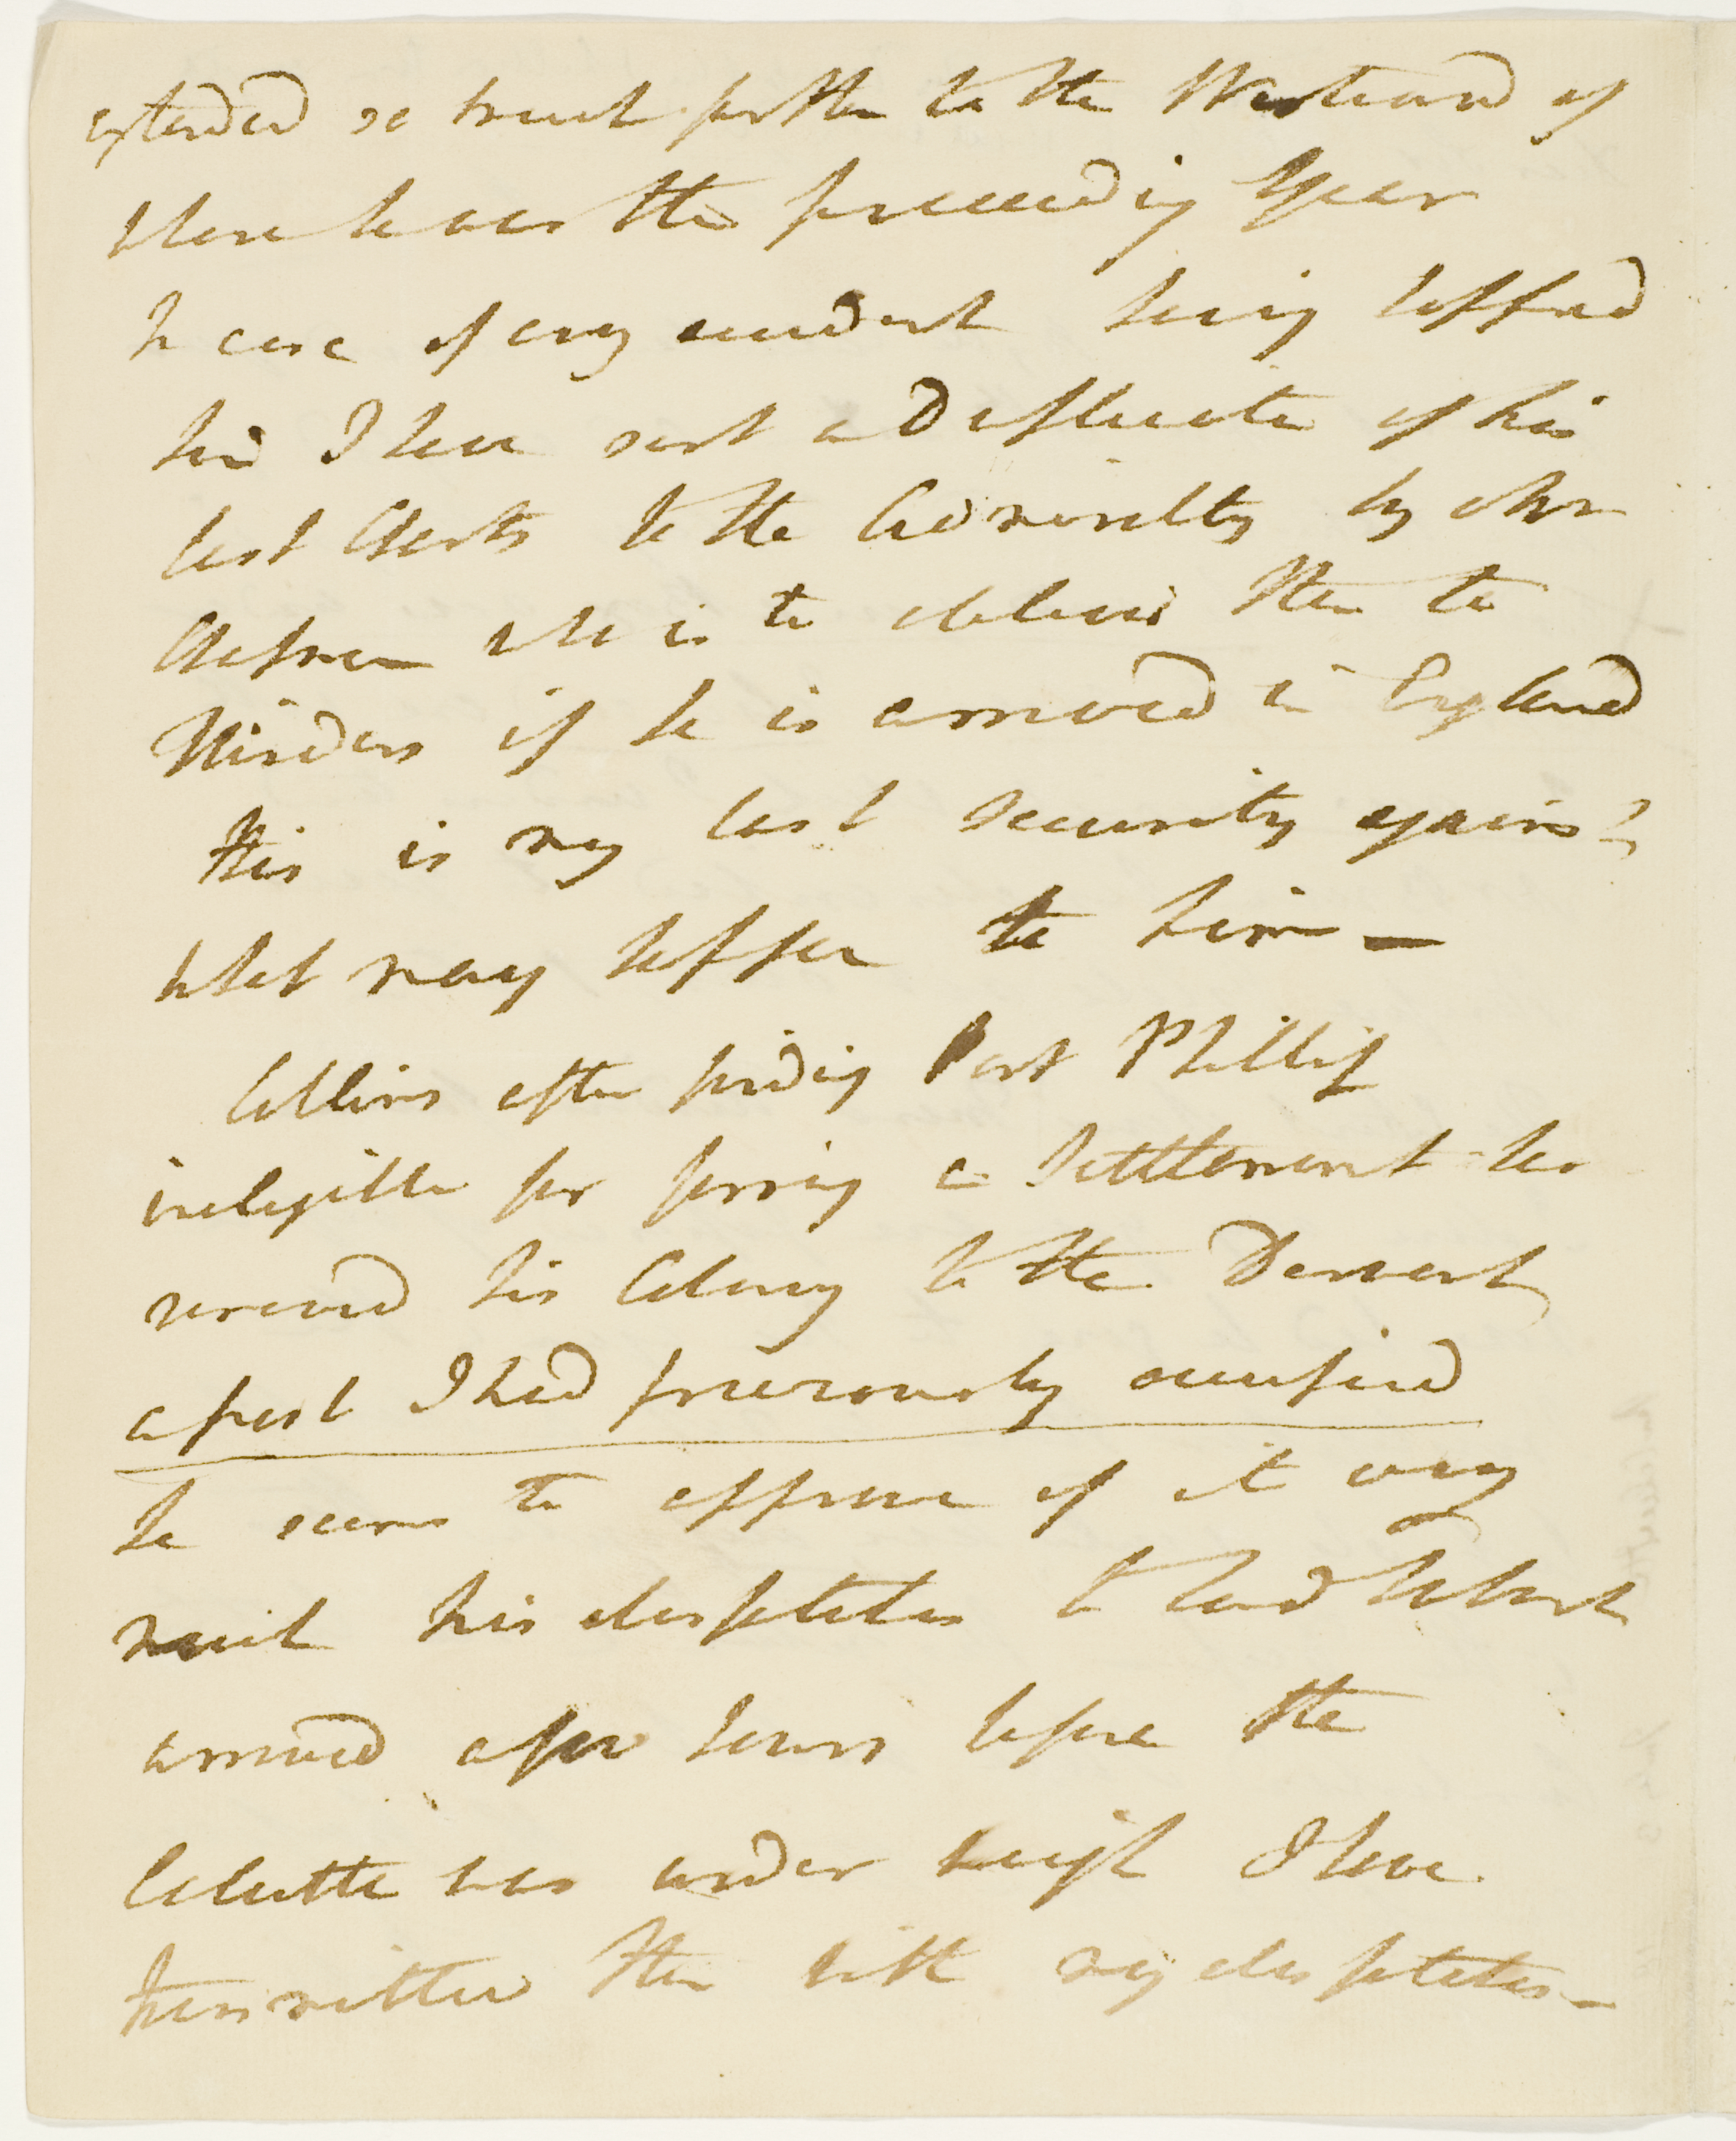 extended so much further to the Westward of
where he was the preceeding Year
In case of any accident having happened
him I have sent a Duplicate of his
last Charts to the Admiralty by Mr
Chapman who is to deliver them to
Flinders if he is arrived in England
this is my last security against
what may happen to him —
Collins after finding Port Phillip
ineligible for forming a Settlement has
removed his Colony to the Derwent
a post I had previously occupied
he seems to approve of it very
much his despatches to Lord Hobart
arrived a few hours before the
Calcutta was under weigh I have
transmitted them with my despatches —